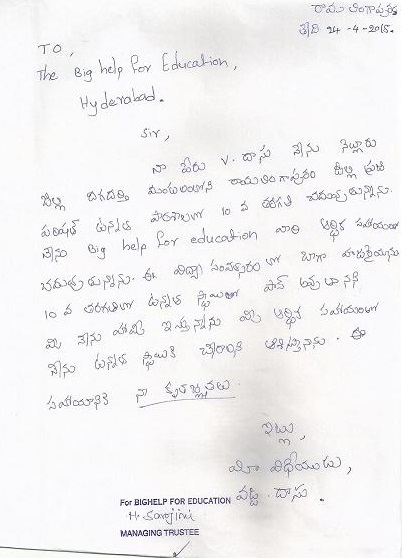 రామలింగాపురం
తేది 24-4-2015.
TO,
The Big help for Education,
Hyderabad.
Sir,
నా పేరు V. దాసు నేను నెల్లూరు
జిల్లా దగదర్తి మండలంలోని రామలింగాపురం జిల్లా ప్రజా
పరిషత్ ఉన్నత పాఠశాలలో 10 వ తరగతి చదువుతున్నాను.
నేను Big help for education వారి ఆర్థిక సహాయంతో
చదువుతున్నాను. ఈ విద్యా సంవత్సరంలో బాగా
10 వ తరగతిలో ఉన్నత స్థాయిలో పాస్ అవుతానని
మీకు నేను హామీ ఇస్తున్నాను మీ ఆర్థిక సహాయంతో
నేను ఉన్నత స్థాయికి చేరాలని ఆశిస్తూనను. ఈ
సహాయానికి నా కృతజ్ఞతలు.
ఇట్లు,
మీ విధేయుడు,
దాసు.
For BIGHELP FOR EDUCATION
M. Sarojini
MANAGING TRUSTEE